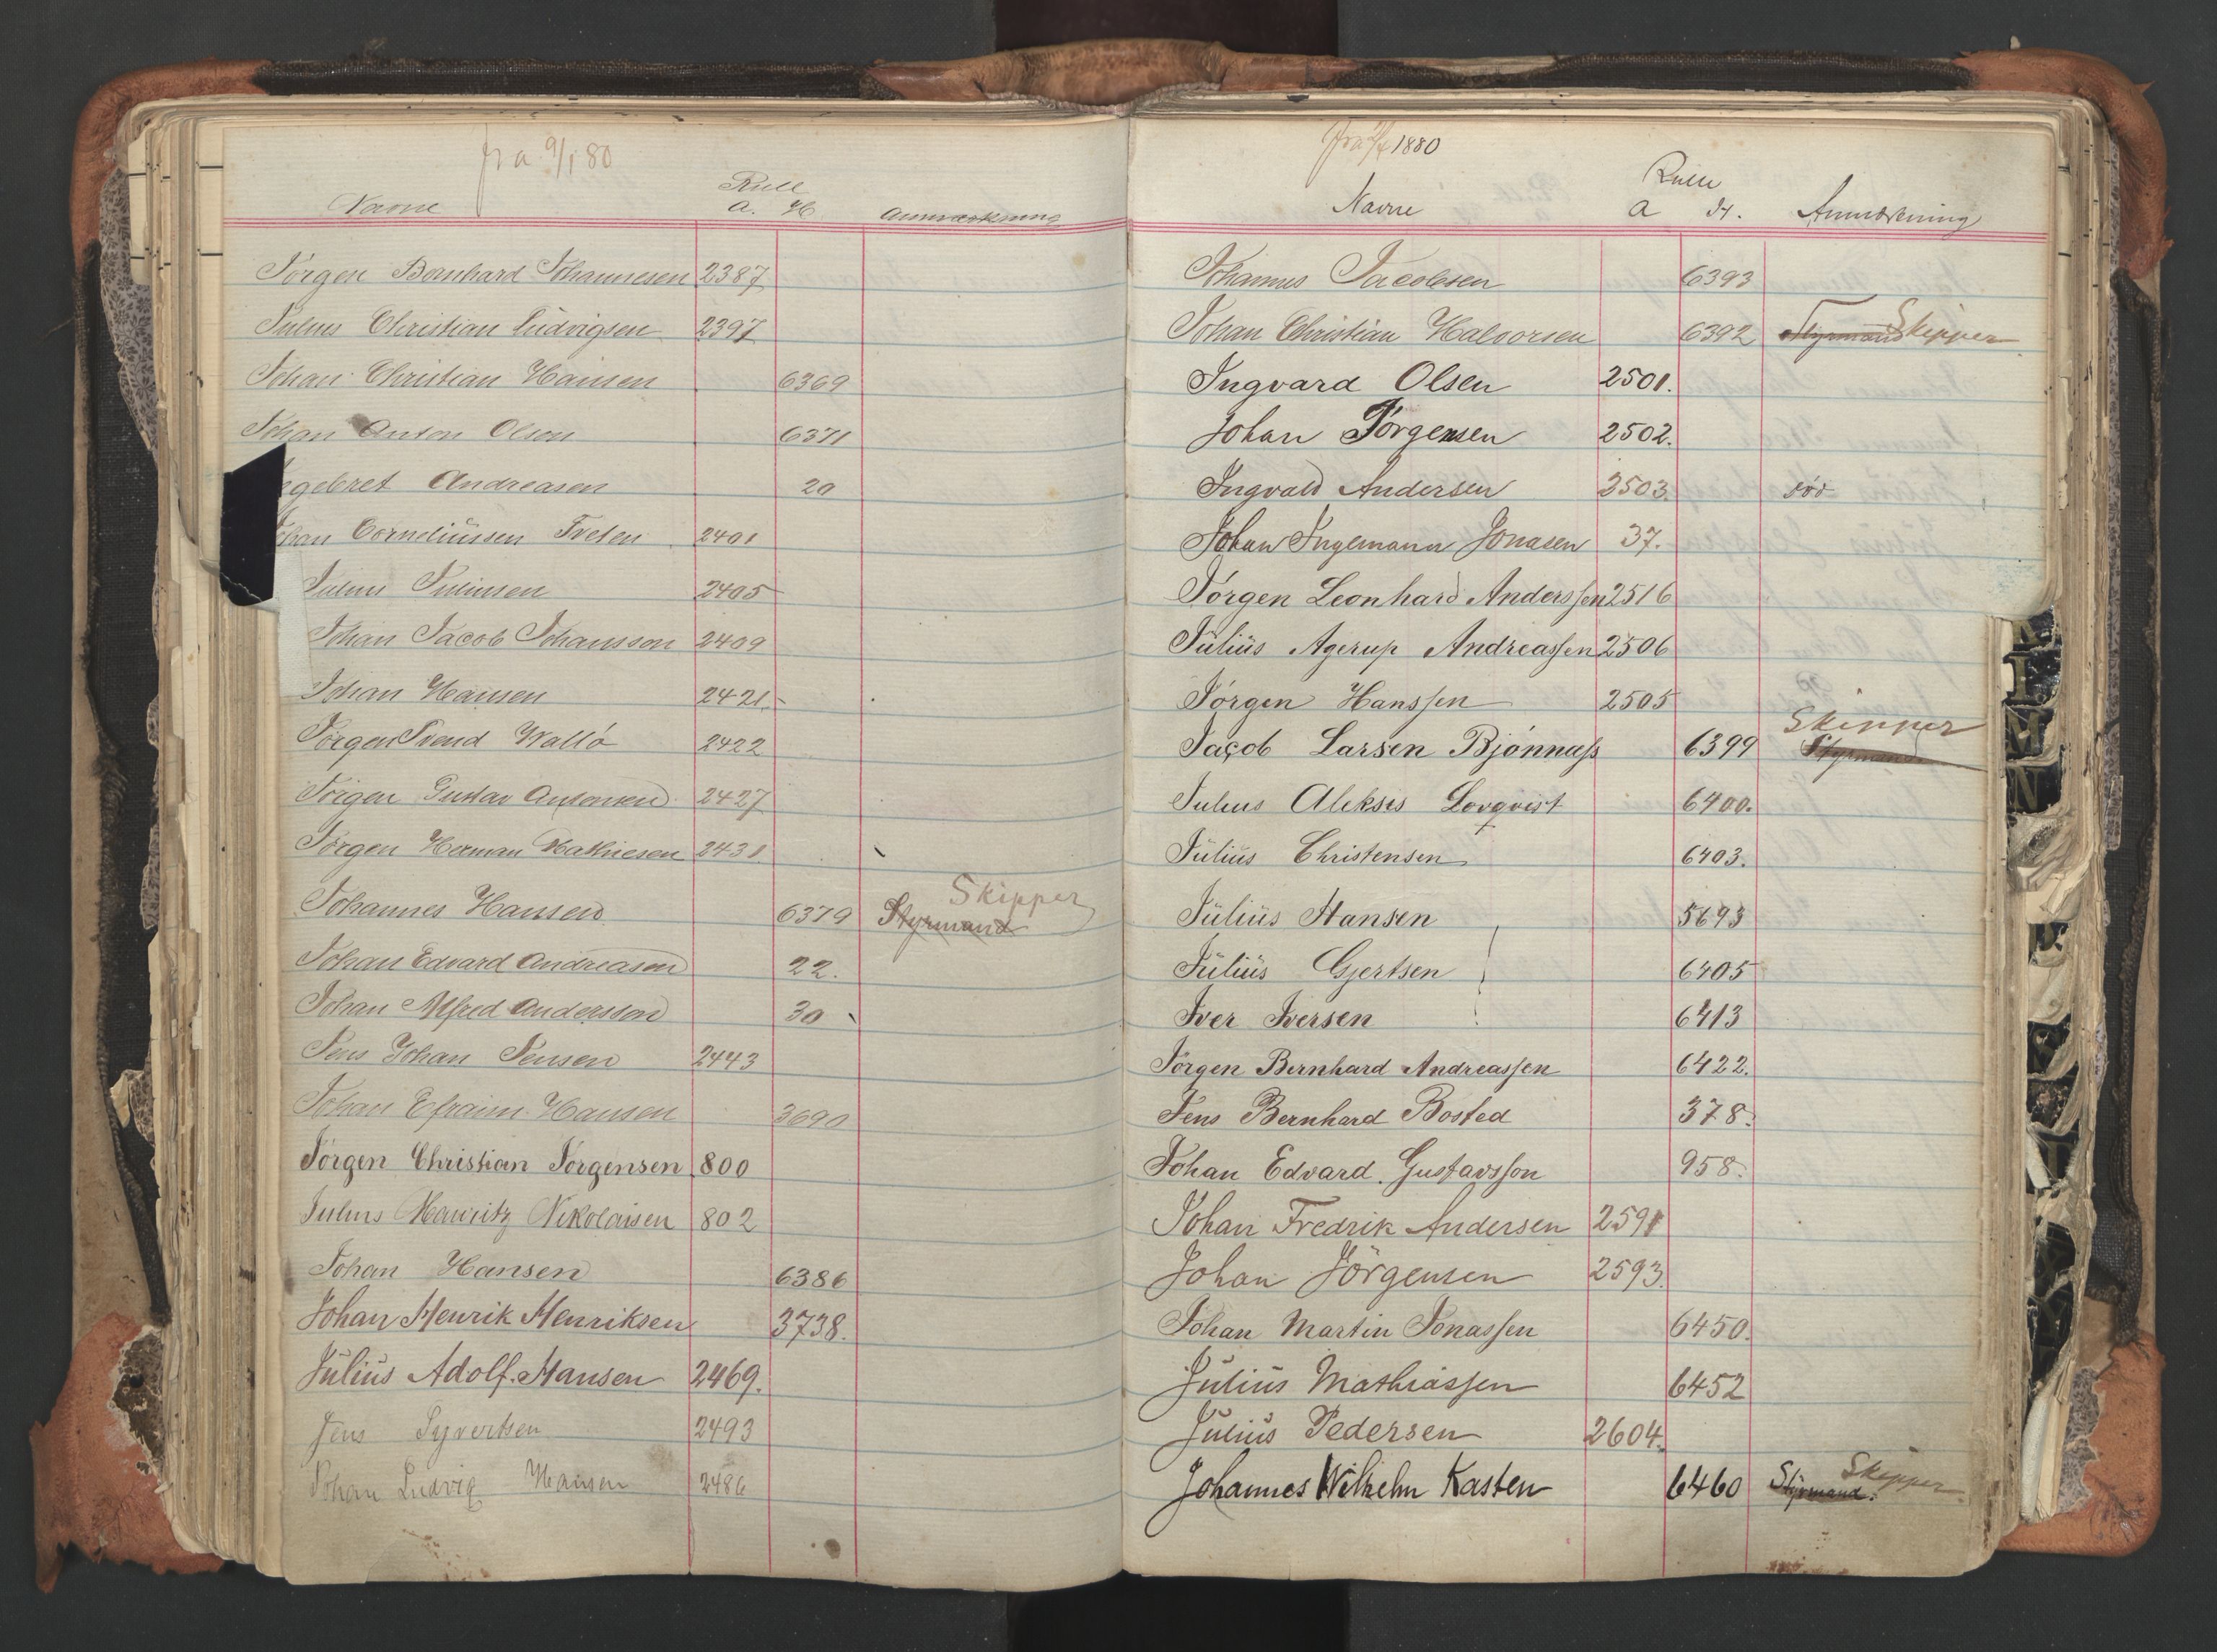 fra 9/1 80
Navne Rull a. H Anmærkning
Jörgen Bernhard Johannesen 2387
Julius Christian Ludvigsen 2397
Johan Christian Hansen 6369
Johan Anton Olsen 6371
gebret Andreasen 20
Johan Corneliussen Tveten 2401
Julius Juliussen 2405
Johan Jacob Johansson 2409
Johan Hansen 2421.
Jörgen Svend Wallö 2422
Jörgen Gustav Antonsen 2427
Jörgen Herman Mathiesen 2431
Johannes Hansen 6379 Styrmand Skipper
Johan Edvard Andreasen 22.
Johan Alfred Andersson 30
Jens Johan Jensen 2443
Johan Efraim Hansen 3690
Jörgen Christian Jörgensen 800
Julius Mauritz Nikolaisen 802
Johan Hansen 6386
Johan Henrik Henriksen 3738.
Julius Adolf. Hansen 2469.
Jens Syvertsen 2493
Johan Ludvig Hansen 2486
fra 1880
Navne Rulle a H. Anmærkning
Johannes Jacobsen 6393
Johan Christian Halvorsen 6392 Styrmand Skipper
Ingvard Olsen 2501.
Johan Jörgensen 2502.
Ingvald Andersen 2503. död
Johan Ingemann Jonasen 37.
Jörgen Leonhard Anderssen 2516
Julius Agerup Andreassen 2506
Jörgen Hanssen 2505
Jacob Larsen Bjönness 6399 Styrmand Skipper
Julius Aleksis Lovqvist 6400.
Julius Christensen 6403.
Julius Hansen 5693
Julius Gjertsen 6405
Iver Iversen 6413
Jörgen Bernhard Andreassen 6422.
Jens Bernhard Bosted 378.
Johan Edvard. Gustavsson 958.
Johan Fredrik Andersen 2591
Johan Jörgensen 2593.
Johan Martin Jonassen 6450.
Julius Mathiassen 6452
Julius Pedersen 2604.
Johannes Wilhelm Kasten 6460 Styrmand. Skipper